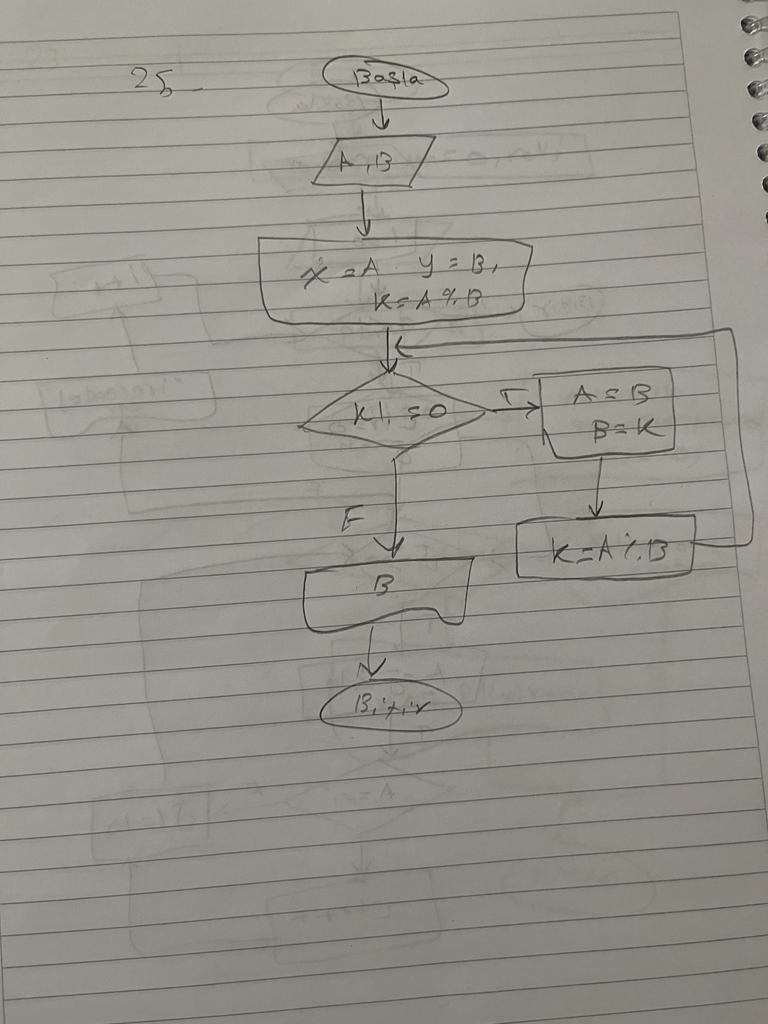 25-
Başla
A, B
x = A y = B,
K = A % B
K != 0
T
A = B
B = K
K = A % B
F
B
Bitir